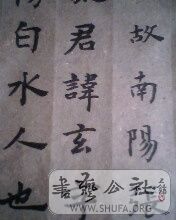 故南陽
君諱玄
白水人也
書藝公社
WWW.SHUFA.ORG